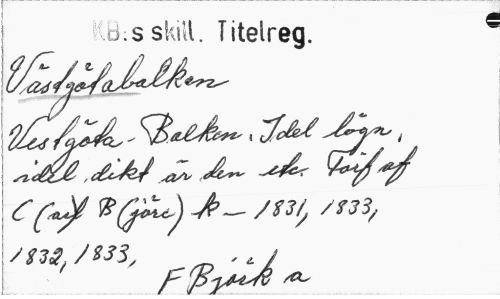 KB:s skill. Titelreg.
Västgötabalken
Vestgöta-Balken. Idel lögn,
idel dikt är den etc. Förf af
C(arl) B(jörc)k – 1831, 1833,
1832, 1833,
F Björk a